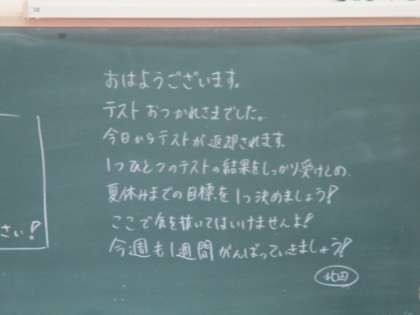 おはようございます。
テストおつかれさまでした。
今日からテストが返却されます。
1つひとつのテストの結果をしっかり受けとめ、
夏休みまでの目標を1つ決めましょう!
ここで気を抜いてはいけませんよ!
今週も1週間がんばっていきましょう!
さい!